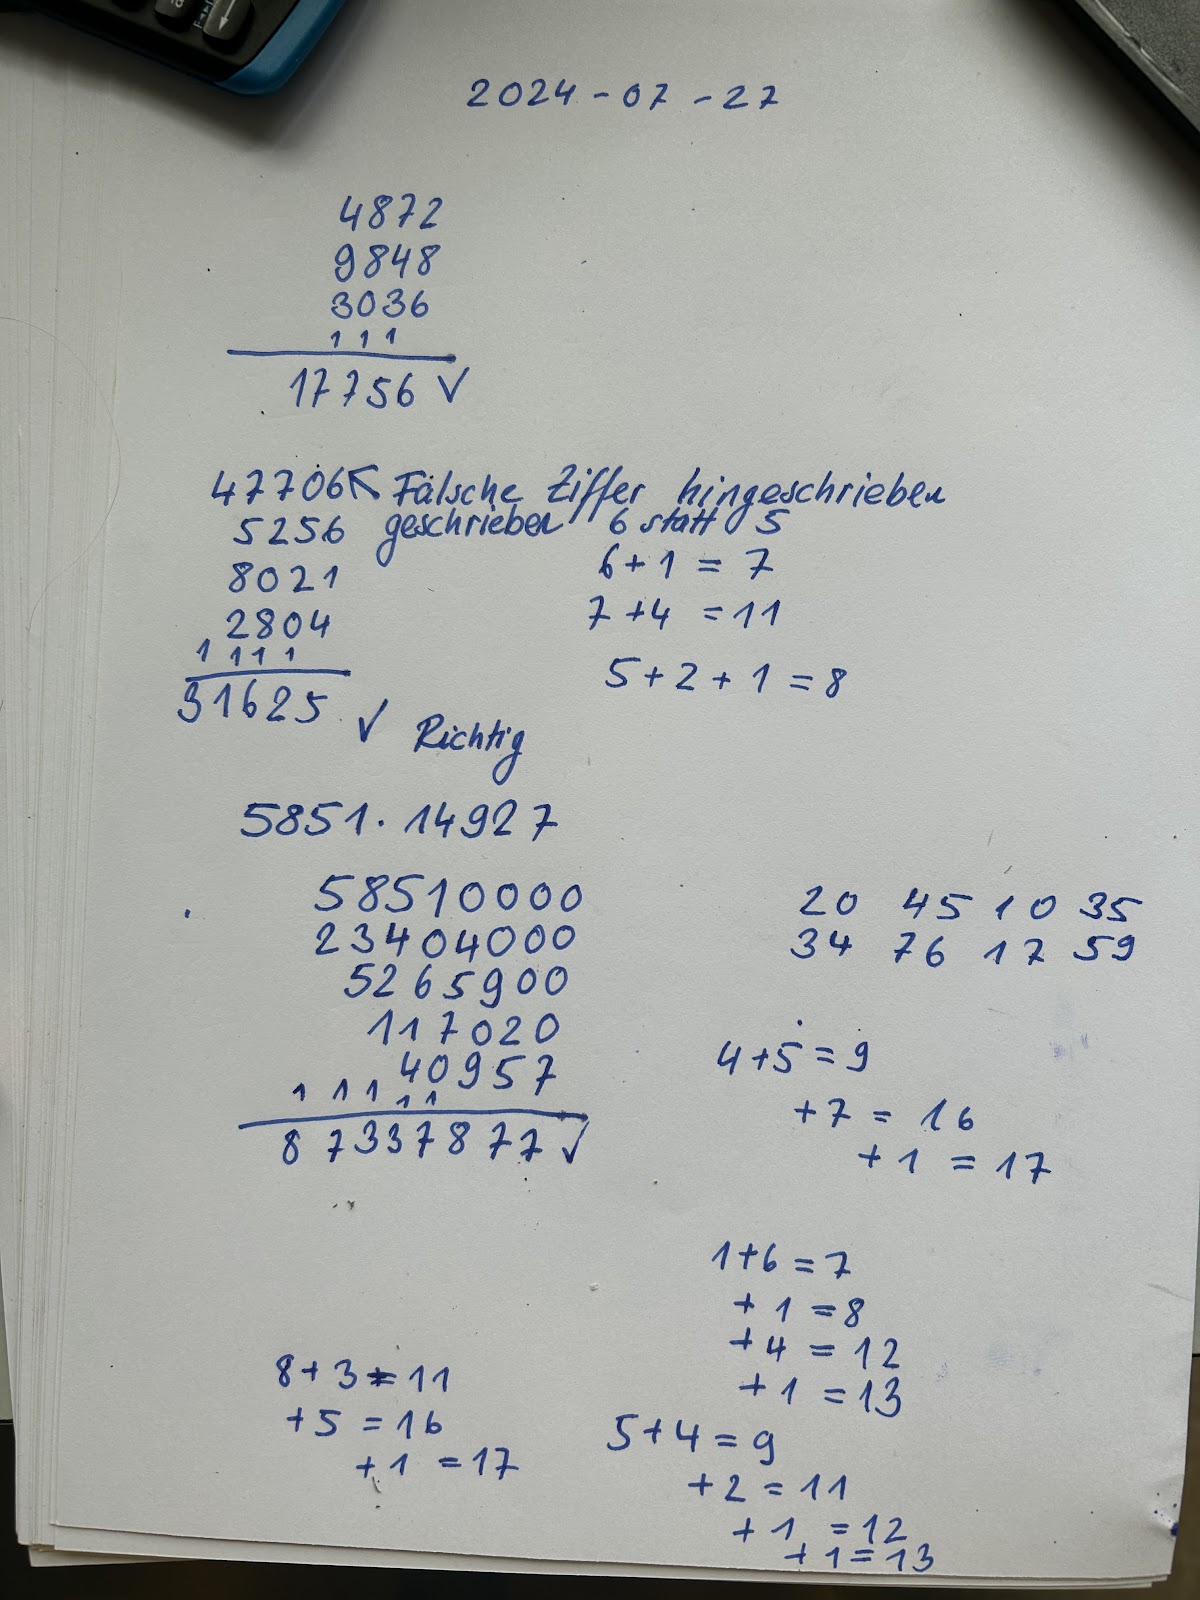 2024-07-27
4872
9848
3036
1 1 1
17756 ✓
47706 ↖ Falsche Ziffer hingeschrieben
5256 geschrieben 6 statt 5
8021
2804
1 1 1 1
31625 ✓ Richtig
6+1 = 7
7+4 = 11
5+2+1 = 8
5851 · 14927
58510000
23404000
5265900
117020
40957
1 1 1 1 1
87337877 ✓
20 45 10 35
34 76 17 59
4+5 = 9
+7 = 16
+1 = 17
1+6 = 7
+1 = 8
+4 = 12
+1 = 13
8+3 = 11
+5 = 16
+1 = 17
5+4 = 9
+2 = 11
+1 = 12
+1 = 13